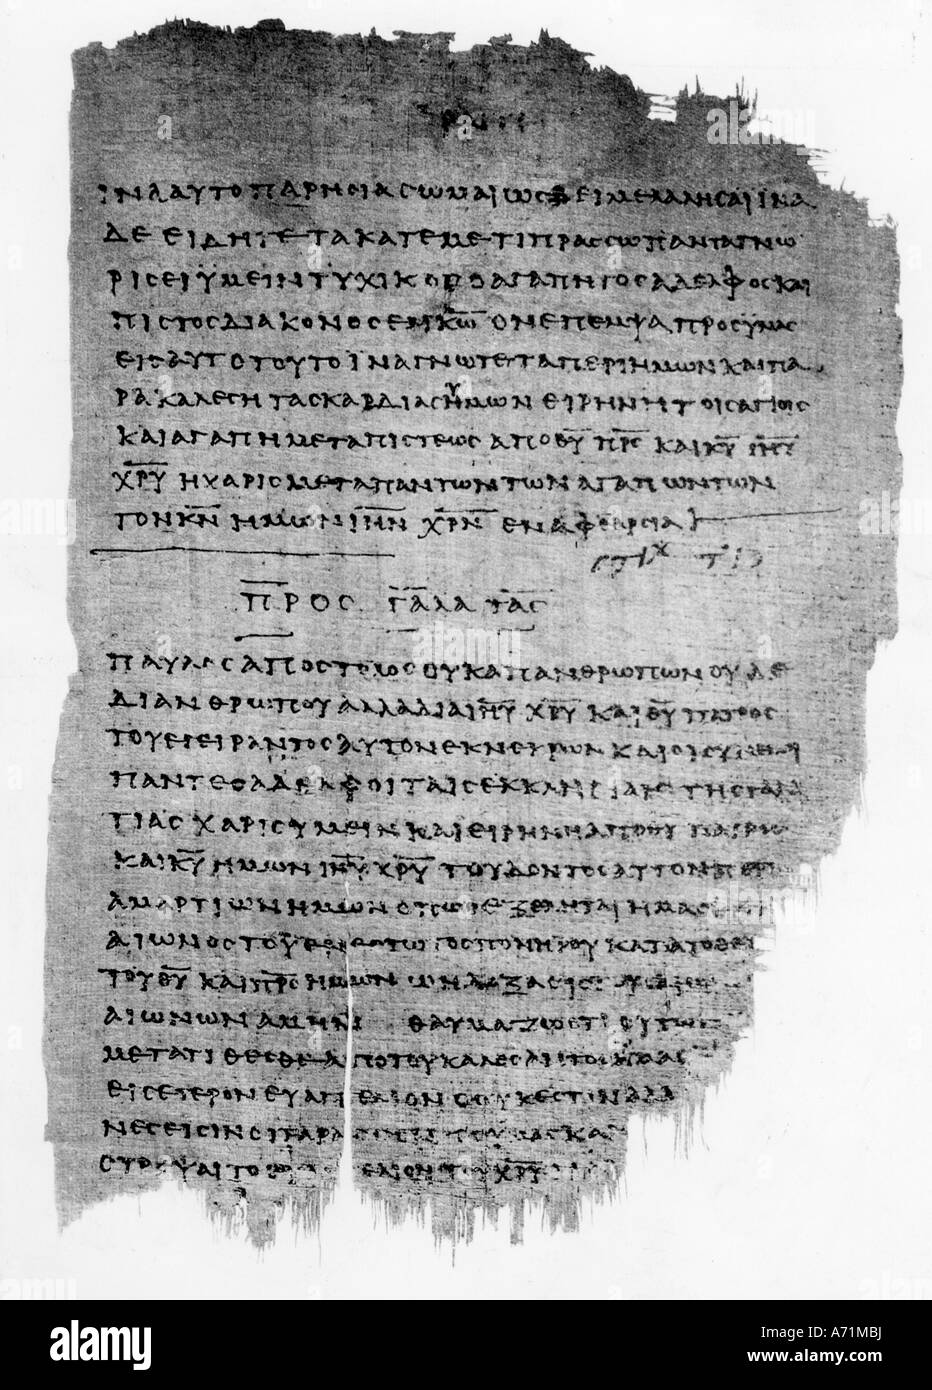 ΙΝΑΑΥΤΟΠΑΡΗΣΙΑΣΩΜΑΙΩΣΔΕΙΜΕΛΑΛΗΣΑΙΙΝΑ
ΔΕΕΙΔΗΤΕΤΑΚΑΤΕΜΕΤΙΠΡΑΣΣΩΠΑΝΤΑΓΝΩ
ΡΙΣΕΙΫΜΕΙΝΤΥΧΙΚΟΣΟΑΓΑΠΗΤΟΣΑΔΕΛΦΟΣΚΑΙ
ΠΙΣΤΟΣΔΙΑΚΟΝΟΣΕΝΚ̅Ω̅ΟΝΕΠΕΜΨΑΠΡΟΣΫΜΑΣ
ΕΙΣΑΥΤΟΤΟΥΤΟΙΝΑΓΝΩΤΕΤΑΠΕΡΙΗΜΩΝΚΑΙΠΑ
ΡΑΚΑΛΕΣΗΤΑΣΚΑΡΔΙΑΣΥΗΜΩΝΕΙΡΗΝΗΤΟΙΣΑΓΙΟΙΣ
ΚΑΙΑΓΑΠΗΜΕΤΑΠΙΣΤΕΩΣΑΠΟΘ̅Υ̅Π̅Ρ̅Σ̅ΚΑΙΚ̅Υ̅Ι̅Η̅Υ̅
Χ̅Ρ̅Υ̅ΗΧΑΡΙΣΜΕΤΑΠΑΝΤΩΝΤΩΝΑΓΑΠΩΝΤΩΝ
ΤΟΝΚ̅Ν̅ΗΜΩΝΙ̅Η̅Ν̅Χ̅Ρ̅Ν̅ΕΝΑΦΘΑΡΣΙΑ
ΣΤΙΧ ΤΙϚ
ΠΡΟΣ ΓΑΛΑΤΑΣ
ΠΑΥΛΟΣΑΠΟΣΤΟΛΟΣΟΥΚΑΠΑΝΘΡΩΠΩΝΟΥΔΕ
ΔΙΑΝΘΡΩΠΟΥΑΛΛΑΔΙΑΙ̅Η̅Υ̅Χ̅Ρ̅Υ̅ΚΑΙΘ̅Υ̅ΠΑΤΡΟΣ
ΤΟΥΕΓΕΙΡΑΝΤΟΣΑΥΤΟΝΕΚΝΕΚΡΩΝΚΑΙΟΙΣΥΝΕΜΟΙ
ΠΑΝΤΕΣΑΔΕΛΦΟΙΤΑΙΣΕΚΚΛΗΣΙΑΙΣΤΗΣΓΑΛΑ
ΤΙΑΣΧΑΡΙΣΥΜΕΙΝΚΑΙΕΙΡΗΝΗΑΠΟΘ̅Υ̅ΠΑΤΡΟΣ
ΚΑΙΚ̅Υ̅ΗΜΩΝΙ̅Η̅Υ̅Χ̅Ρ̅Υ̅ΤΟΥΔΟΝΤΟΣΑΥΤΟΝΠΕΡΙ
ΑΜΑΡΤΙΩΝΗΜΩΝΟΠΩΣΕΞΕΛΗΤΑΙΗΜΑΣΕΚ
ΑΙΩΝΟΣΤΟΥ ΠΟΝΗΡΟΥΚΑΤΑΤΟΘΕΛ
ΤΟΥΘ̅Υ̅ΚΑΙΠ̅Ρ̅Σ̅ΗΜΩΝΩΗΔΟΞΑΕΙΣ
ΑΙΩΝΩΝΑΜΗΝ ΘΑΥΜΑΖΩΟΤΙΟΥΤΩΣ
ΜΕΤΑΤΙΘΕΣΘΕΑΠΟΤΟΥΚΑΛΕΣΑΝΤΟΣΗΜΑΣ
ΕΙΣΕΤΕΡΟΝΕΥΑΓΓΕΛΙΟΝΟΟΥΚΕΣΤΙΝΑΛΛ
ΝΕΣΕΙΣΙΝΟΙΤΑΡΑΣΣΟΝΤΕΣΥΜΑΣΚΑ
ΣΤΡΕΨΑΙΤΟ ΕΛΙΟΝΤΟΥΧ̅Ρ̅Υ̅
alamy
Image ID: A71MBJ
www.alamy.com